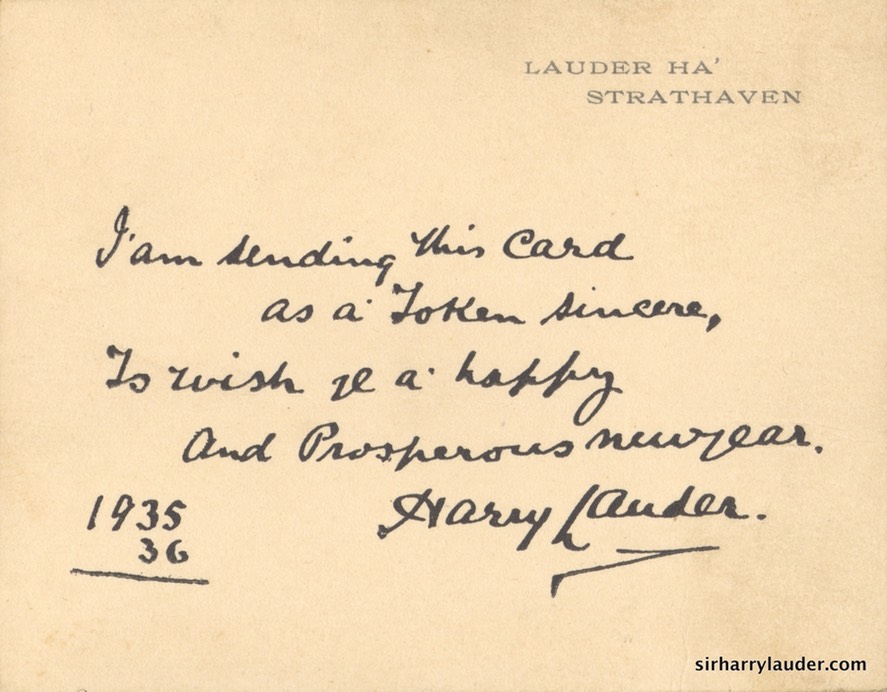 LAUDER HA'
STRATHAVEN
I am sending this Card
as a Token sincere,
To wish ye a happy
And Prosperous new year.
1935
36
Harry Lauder.
sirharrylauder.com